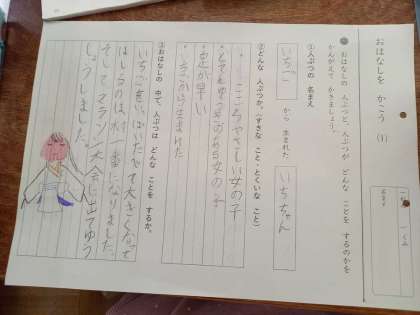 おはなしを かこう (1)
一ねん 一くみ
名まえ
● おはなしの 人ぶつと、人ぶつが どんな ことを するのかを
かんがえて かきましょう。
①人ぶつの 名まえ
いちご から 生まれた いちちゃん
②どんな 人ぶつか。(すきな こと・とくいな こと)
・こころやさしい女の子
・とてもゆう気のある女の子
・足が早い
・いちごから生まれた
③おはなしの 中で、人ぶつは どんな ことを するか。
いちごをいっぱいたべて大きくなって
はしるのは村一番になりました。
そしてマラソン大会に出てゆう
しょうしました。